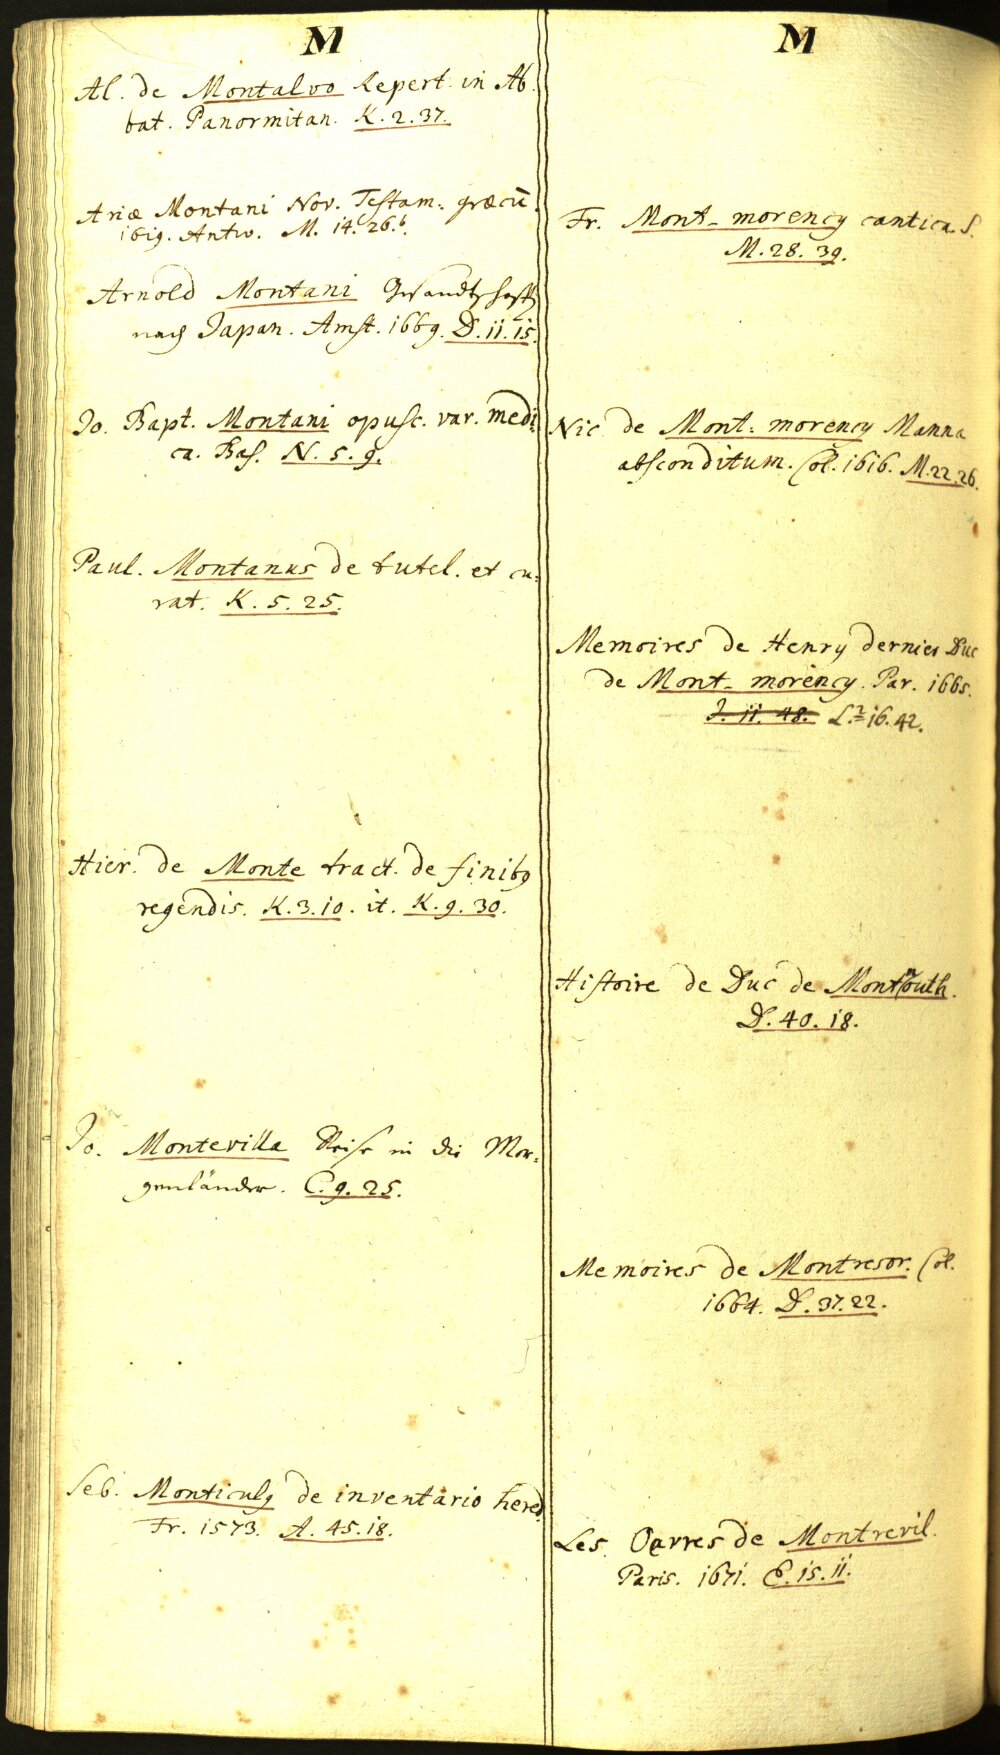 M
Al. de Montalvo Repert. in Ab
bat. Panormitan. K. 2. 37.
Ariæ Montani Nov. Testam. græcū.
1619. Antw. M. 14. 26.b.
Arnold Montani Gesandtschafft
nach Japan. Amst. 1669. D. 11. 15.
Jo. Bapt. Montani opusc. var. medi:
ca. Bas. N. 5. 9.
Paul. Montanus de tutel. et cu:
rat. K. 5. 25.
Hier. de Monte tract. de finibꝰ
regendis. K. 3. 10. it. K. 9. 30.
Jo. Montevilla Reise in die Mor:
genländer. C. 9. 25.
Seb. Monticulꝰ de inventario hered.
Fr. 1573. A. 45. 18.
M
Fr. Mont-morency cantica S.
M. 28. 39.
Nic. de Mont:morency Manna
absconditum. Col. 1616. M. 22. 26.
Memoires de Henry dernier Duc
de Mont-morency. Par. 1665.
J. 11. 48. L. 16. 42.
Histoire de Duc de Montmouth.
D. 40. 18.
Memoires de Montresor. Col.
1664. D. 37. 22.
Les Œvres de Montrevil.
Paris. 1671. E. 15. 11.